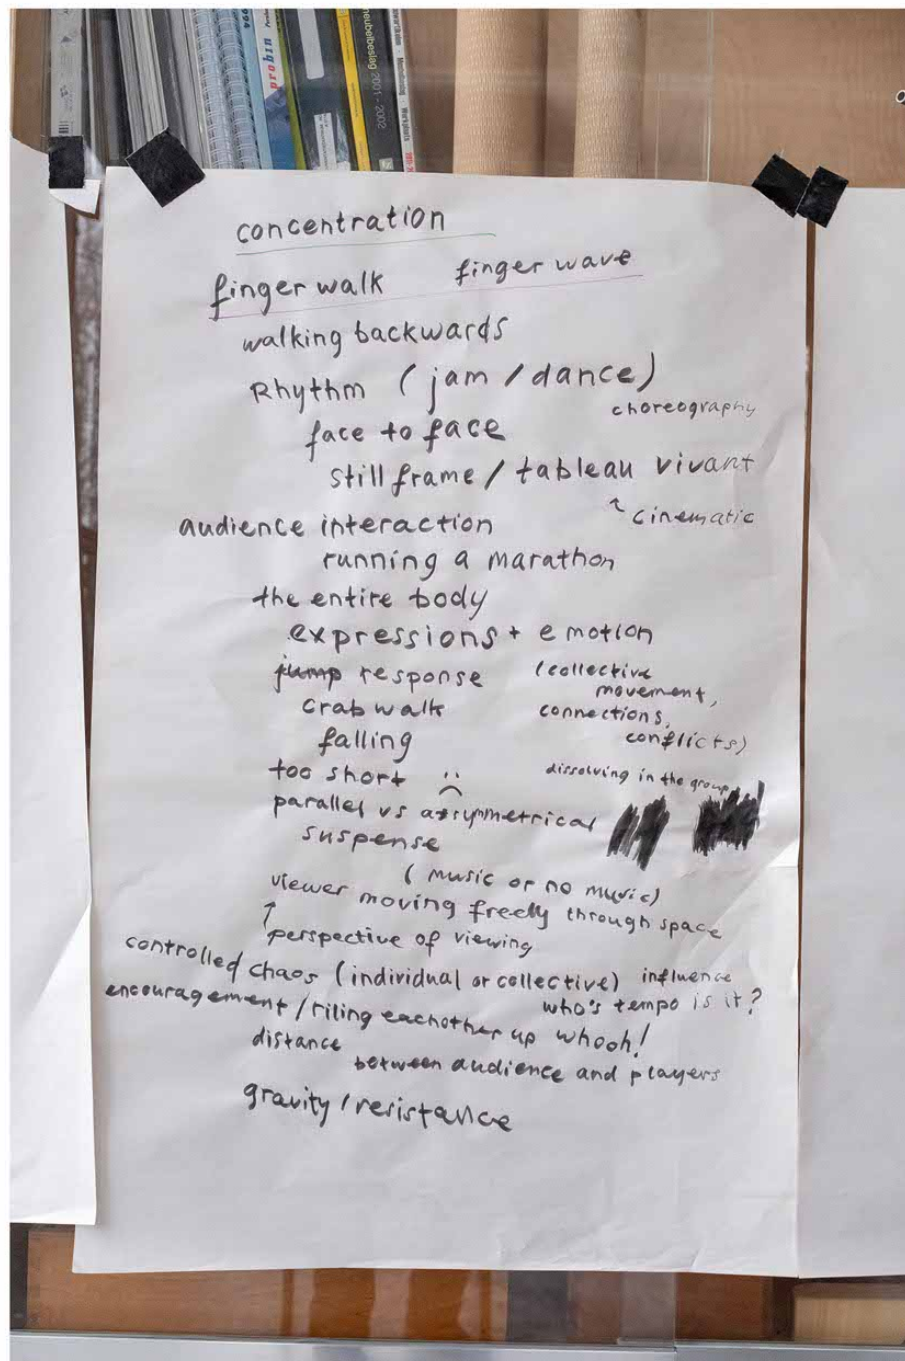 1994
probin
meubelbeslag 2001 - 2002
concentration
finger walk finger wave
walking backwards
Rhythm (jam / dance)
choreography
face to face
still frame / tableau vivant
↑ cinematic
audience interaction
running a marathon
the entire body
expressions + emotion
jump response (collective
movement,
crab walk connections,
falling conflicts)
too short :( dissolving in the group
parallel vs assymmetrical
suspense
(music or no music)
viewer moving freely through space
↑ perspective of viewing
controlled chaos (individual or collective) influence
who's tempo is it?
encouragement / riling eachother up whooh!
distance
between audience and players
gravity / resistance